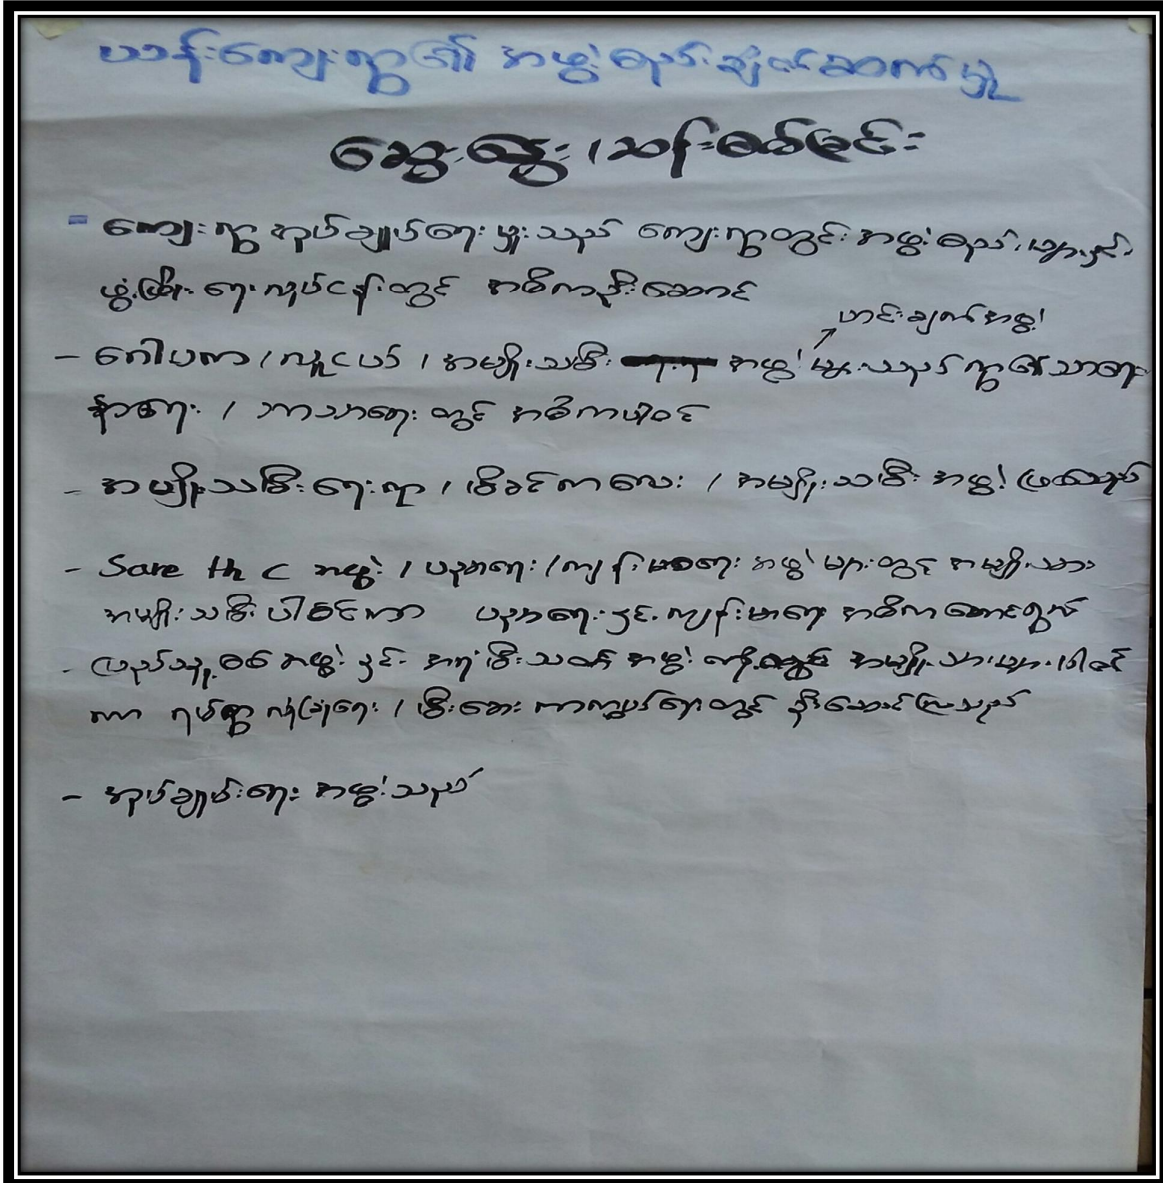 ယာန်းကျေးရွာ၏ အဖွဲ့စည်းချိတ်ဆက်မှု
ဆွေးနွေး/သန်းစစ်ခြင်း
- ကျေးရွာ အုပ်ချုပ်ရေးမှူးသည် ကျေးရွာတွင်း အဖွဲ့စည်းများနှင့်
ဖွံ့ဖြိုးရေးလုပ်ငန်းတွင် အဓိကဦးဆောင်
ဟင်းချက်အဖွဲ့
- ဂေါပက/လူငယ်/အမျိုးသမီး အဖွဲ့များသည် ရွာ၏သာရေး
နာရေး/ဘာသာရေးတွင် အဓိကပါဝင်
- အမျိုးသမီးရေးရာ/မိခင်ကလေး/အမျိုးသမီး အဖွဲ့ ဖြစ်သည်
- Save th C အဖွဲ့/ပညာရေး/ကျန်းမာရေး အဖွဲ့များတွင် အမျိုးသား
အမျိုးသမီး ပါဝင်ကာ ပညာရေးနှင့် ကျန်းမာရေး အဓိကဆောင်ရွက်
- ပြည်သူ့စစ်အဖွဲ့နှင့် အရံမီးသတ်အဖွဲ့ အမျိုးသားများပါဝင်
ကာ ရပ်ရွာလုံခြုံရေး/မီးဘေးကာကွယ်ရေးတွင် ဦးဆောင်ကြသည်
- အုပ်ချုပ်ရေး အဖွဲ့သည်